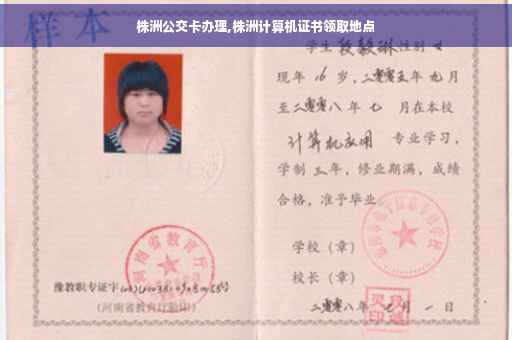 株洲公交卡办理,株洲计算机证书领取地点
样本
学生段毅琳性别女
现年16岁,二零零五年九月
至二零零八年七月在本校
计算机应用 专业学习,
学制三年,修业期满,成绩
合格,准予毕业
学校(章)
校长(章)
二零零八年 月一日
河南省教育厅
豫教职专证字
(河南省教育厅验印)